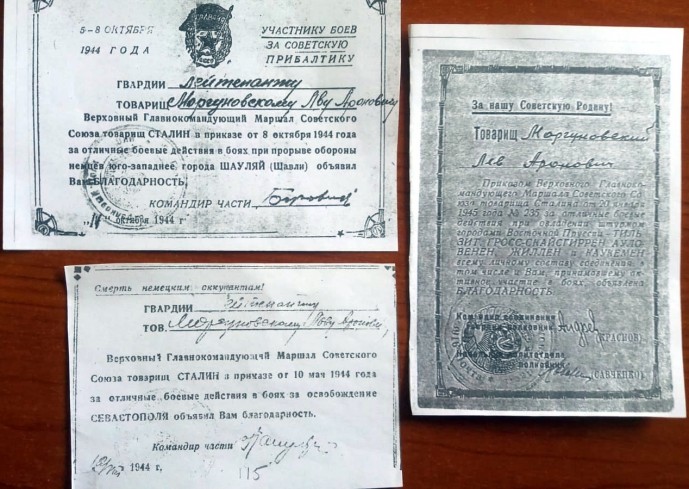 5-8 ОКТЯБРЯ
1944 ГОДА
ГВАРДИЯ
УЧАСТНИКУ БОЕВ
ЗА СОВЕТСКУЮ
ПРИБАЛТИКУ
ГВАРДИИ Лейтенанту
ТОВАРИЩ Моргуновскому Льву Ароновичу
Верховный Главнокомандующий Маршал Советского
Союза товарищ СТАЛИН в приказе от 8 октября 1944 года
за отличные боевые действия в боях при прорыве обороны
немцев юго-западнее города ШАУЛЯЙ (Шавли) объявил
Вам БЛАГОДАРНОСТЬ.
КОМАНДИР ЧАСТИ
октября 1944 г.
Смерть немецким оккупантам!
ГВАРДИИ Лейтенанту
ТОВ. Моргуновскому Льву
Верховный Главнокомандующий Маршал Советского
Союза товарищ СТАЛИН в приказе от 10 мая 1944 года
за отличные боевые действия в боях за освобождение
СЕВАСТОПОЛЯ объявил Вам благодарность.
Командир части
1944 г.
115
За нашу Советскую Родину!
Товарищ Моргуновский
Лев Аронович
Приказом Верховного Главно-
командующего Маршала Советского Со-
юза товарища Сталина от 20 января
1945 года № 235 за отличные боевые
действия при овладении штурмом
городами Восточной Пруссии — ТИЛЬ-
ЗИТ, ГРОСС-СКАЙСГИРРЕН, АУЛО-
ВЕНЕН, ЖИЛЛЕН и КАУКЕМЕН
всему личному составу соединения, в
том числе и Вам, принимавшему ак-
тивное участие в боях, объявлена
БЛАГОДАРНОСТЬ
Командир соединения
полковник
(КРАСНОВ)
полковник
(САВЧЕНКО)